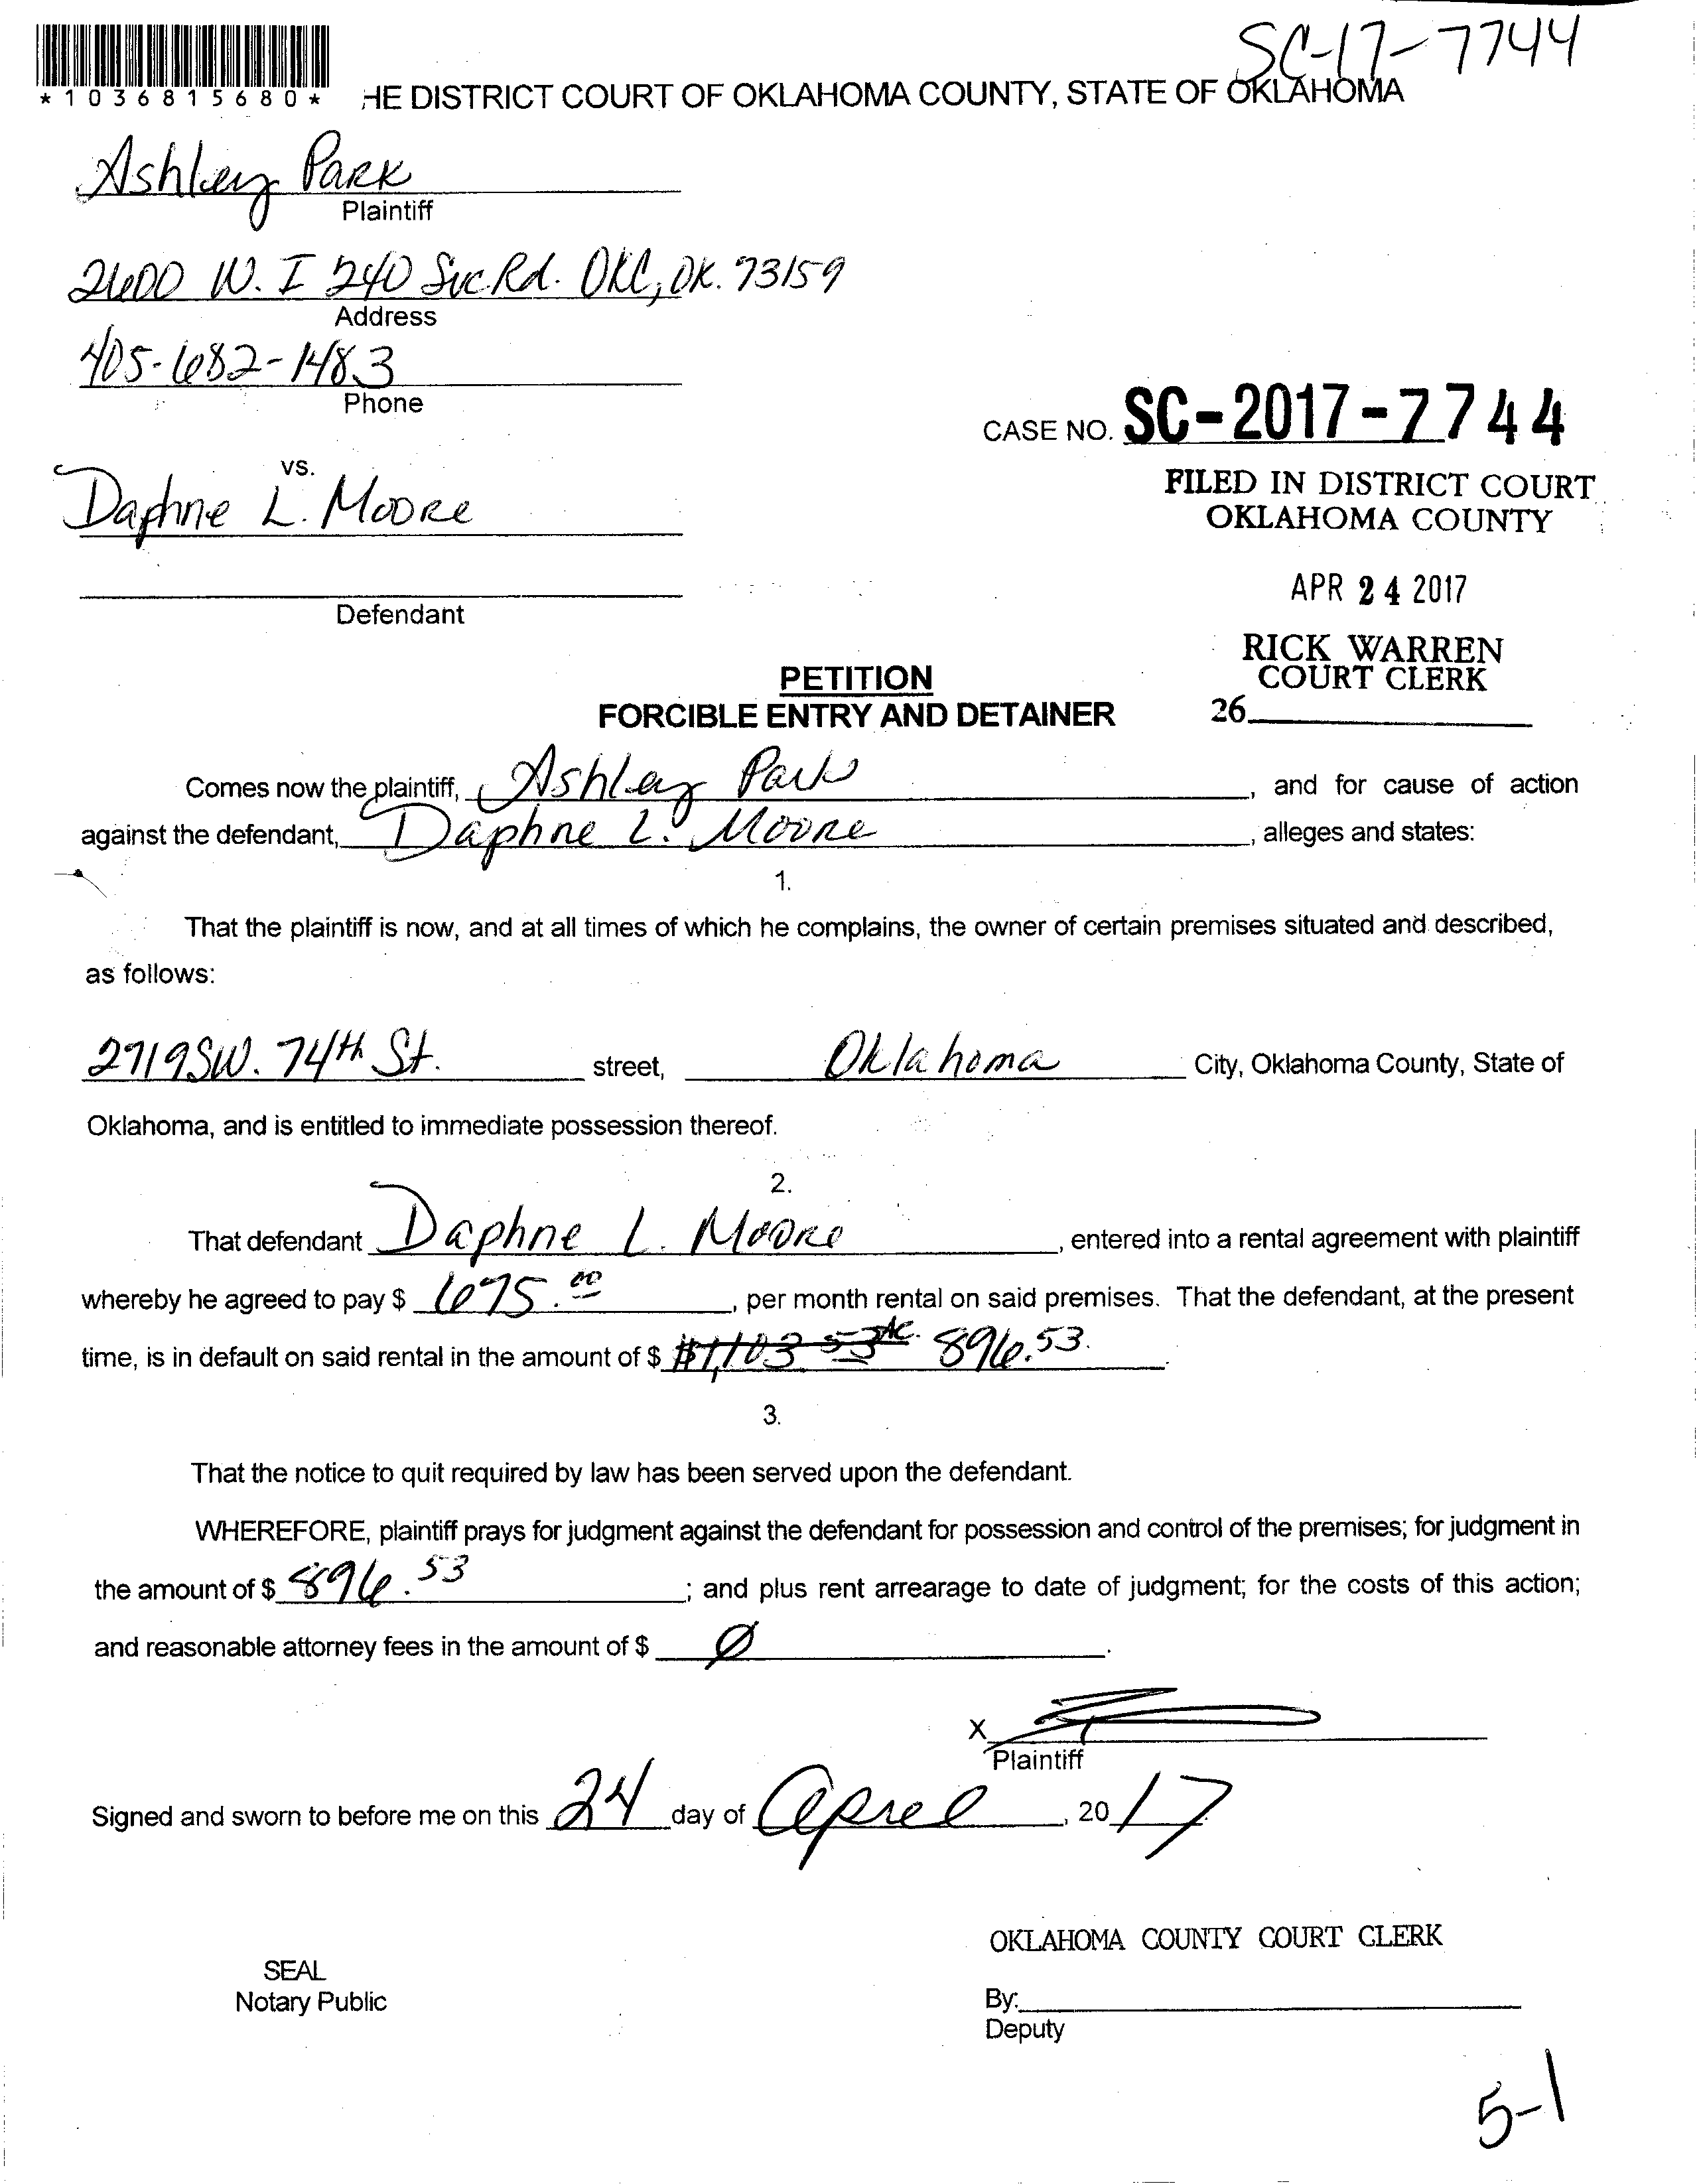 SC-17-7744
*1036815680*
HE DISTRICT COURT OF OKLAHOMA COUNTY, STATE OF OKLAHOMA
Ashley Park
Plaintiff
2600 W. I 240 Svc Rd. OKC, OK. 73159
Address
405-682-1483
Phone
CASE NO. SC-2017-7744
vs.
Daphne L. Moore
FILED IN DISTRICT COURT
OKLAHOMA COUNTY
APR 24 2017
Defendant
RICK WARREN
COURT CLERK
26
PETITION
FORCIBLE ENTRY AND DETAINER
Comes now the plaintiff, Ashley Park, and for cause of action
against the defendant, Daphne L. Moore, alleges and states:
1.
That the plaintiff is now, and at all times of which he complains, the owner of certain premises situated and described,
as follows:
2719 SW. 74th St. street, Oklahoma City, Oklahoma County, State of
Oklahoma, and is entitled to immediate possession thereof.
2.
That defendant Daphne L. Moore, entered into a rental agreement with plaintiff
whereby he agreed to pay $ 675.00, per month rental on said premises. That the defendant, at the present
time, is in default on said rental in the amount of $ $1,103.53 896.53.
3.
That the notice to quit required by law has been served upon the defendant.
WHEREFORE, plaintiff prays for judgment against the defendant for possession and control of the premises; for judgment in
the amount of $ 896.53; and plus rent arrearage to date of judgment; for the costs of this action;
and reasonable attorney fees in the amount of $ Ø.
X
Plaintiff
Signed and sworn to before me on this 24 day of April, 2017
OKLAHOMA COUNTY COURT CLERK
SEAL
Notary Public
By:
Deputy
5-1